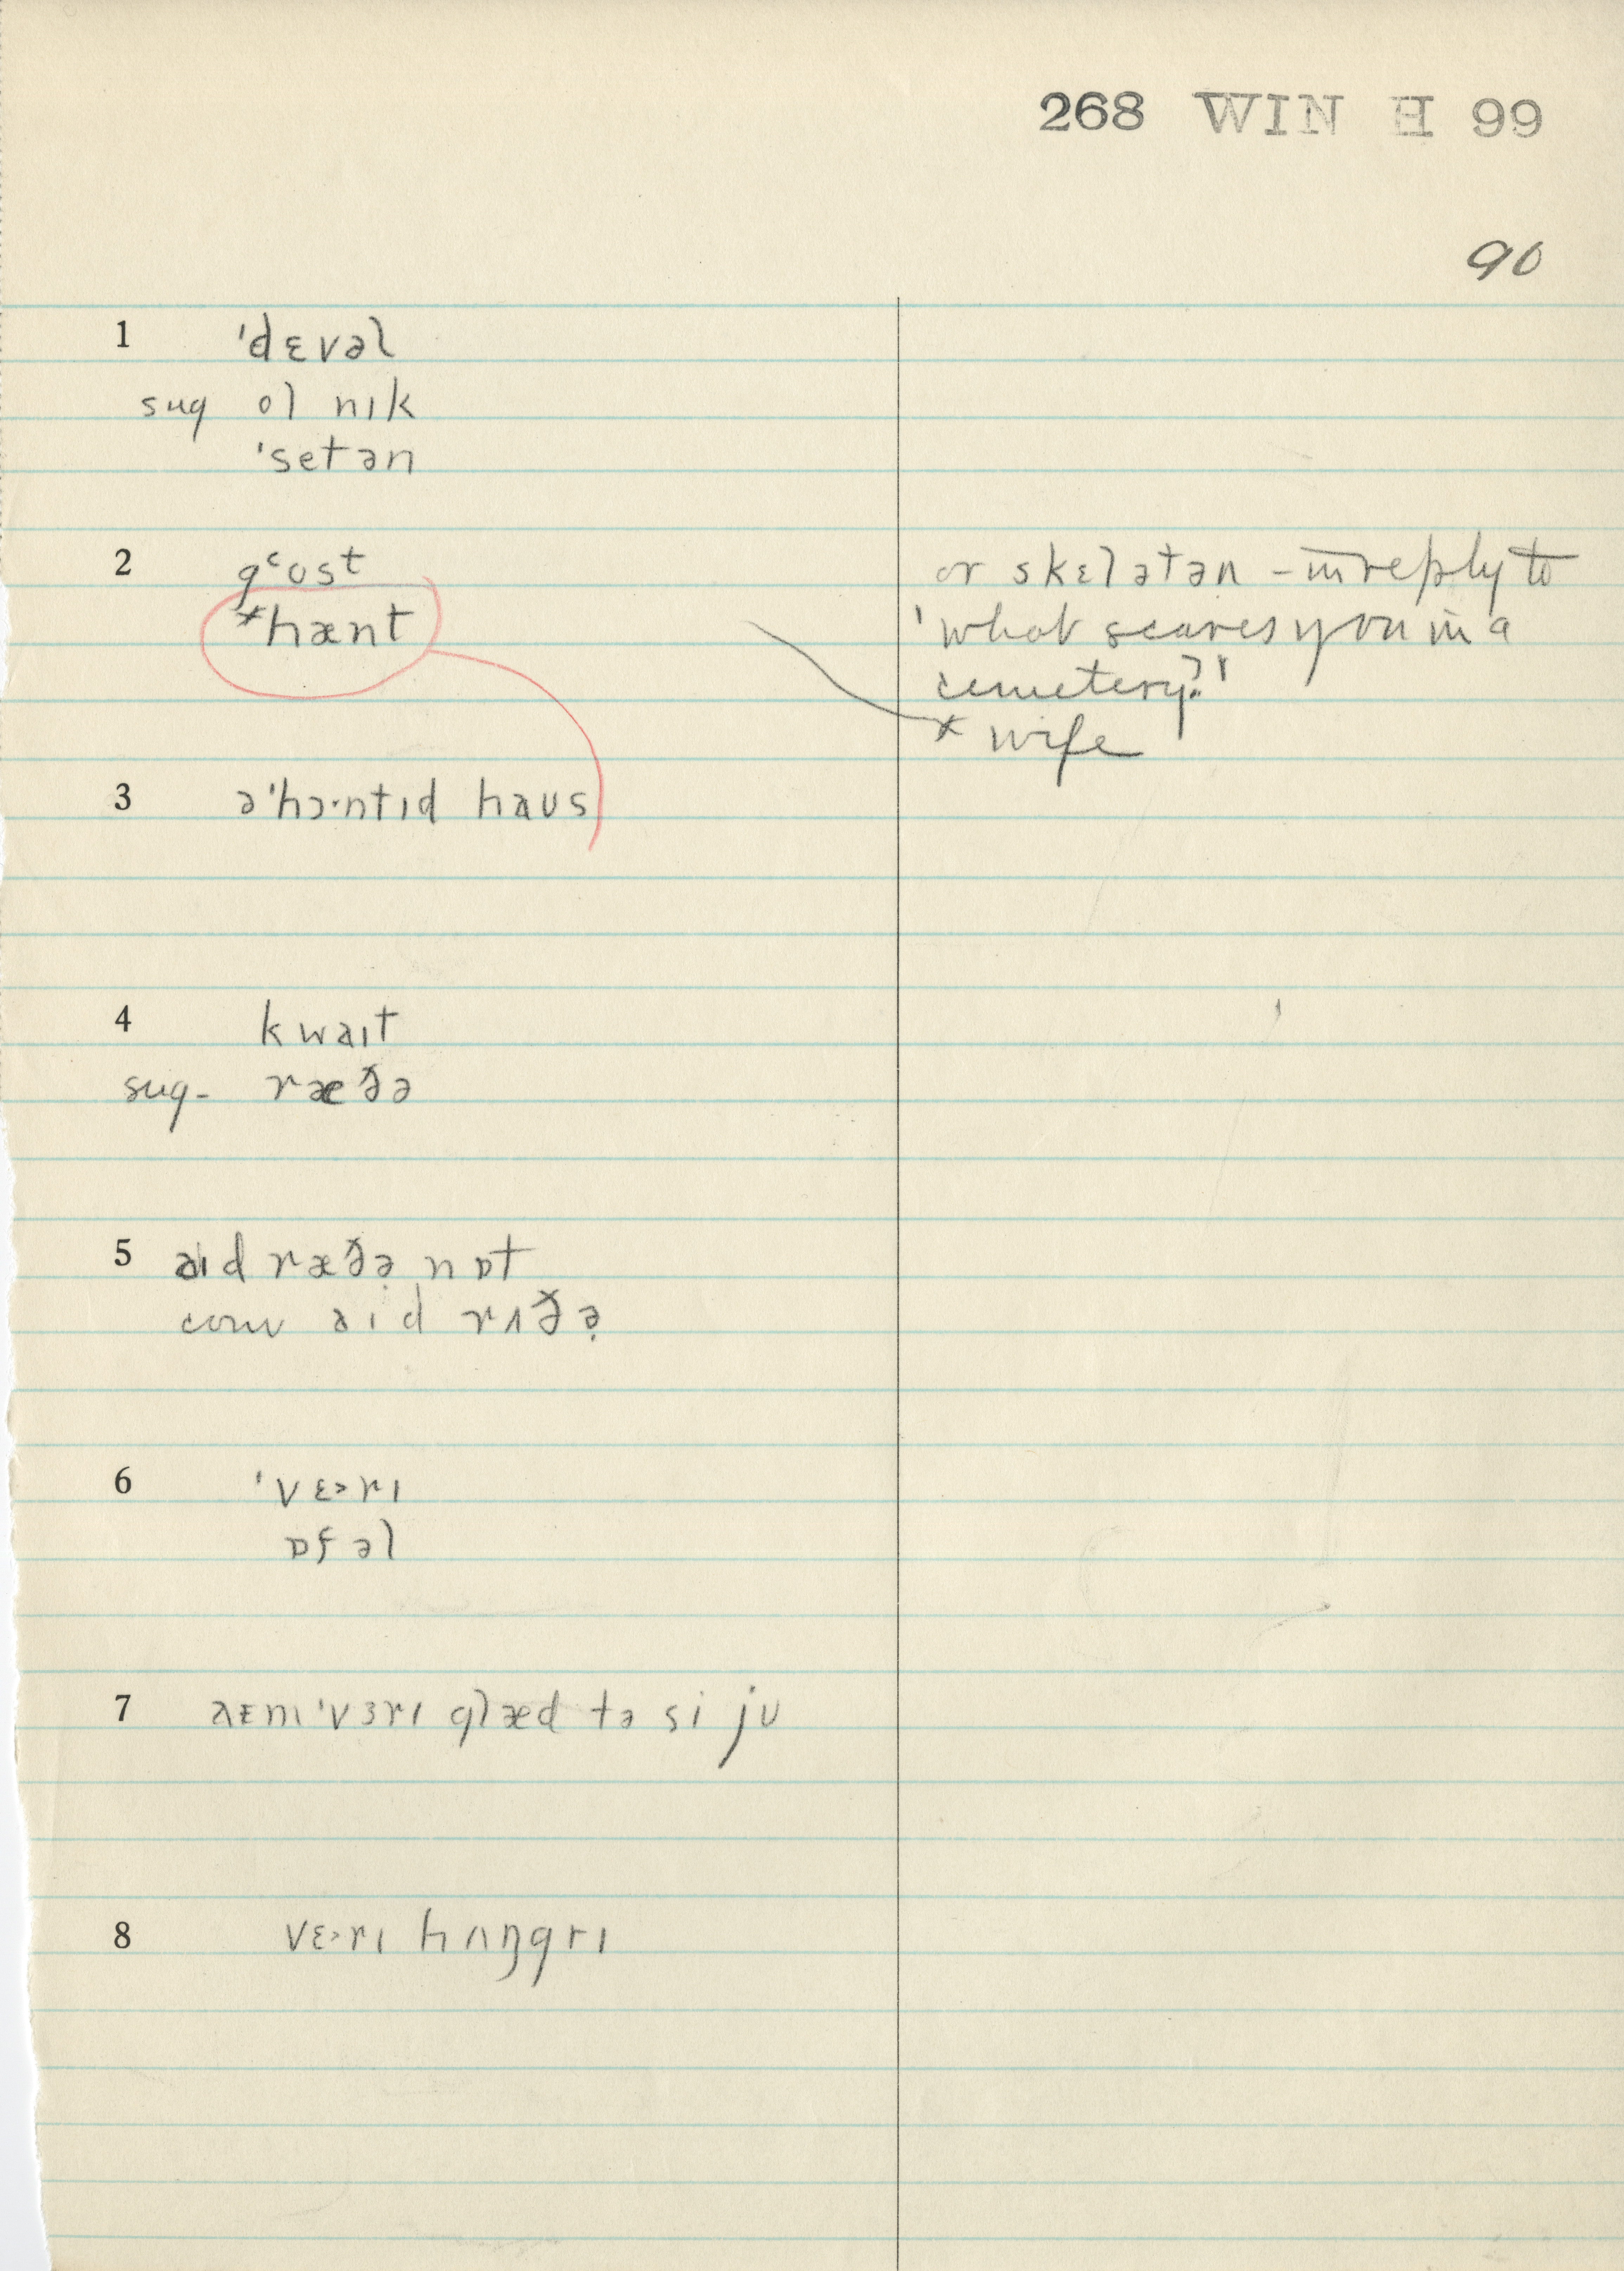 268 WIN H 99
90
1 'dɛvəl
sug ol nɪk
'setən
2 gʿost
or skɛlətən – in reply to
*hænt
'what scares you in a
cemetery?'
x wife
3 ə'hɔ·ntɪd haus
4 kwaɪt
sug- ræðə
5 aɪd ræðə̣ nɒt
conv aɪd rʌðə̣
6 'vɛ>rɪ
ɒfəl
7 aɛm 'vɜrɪ glæd tə si ju
8 vɛ>rɪ hʌŋgrɪ